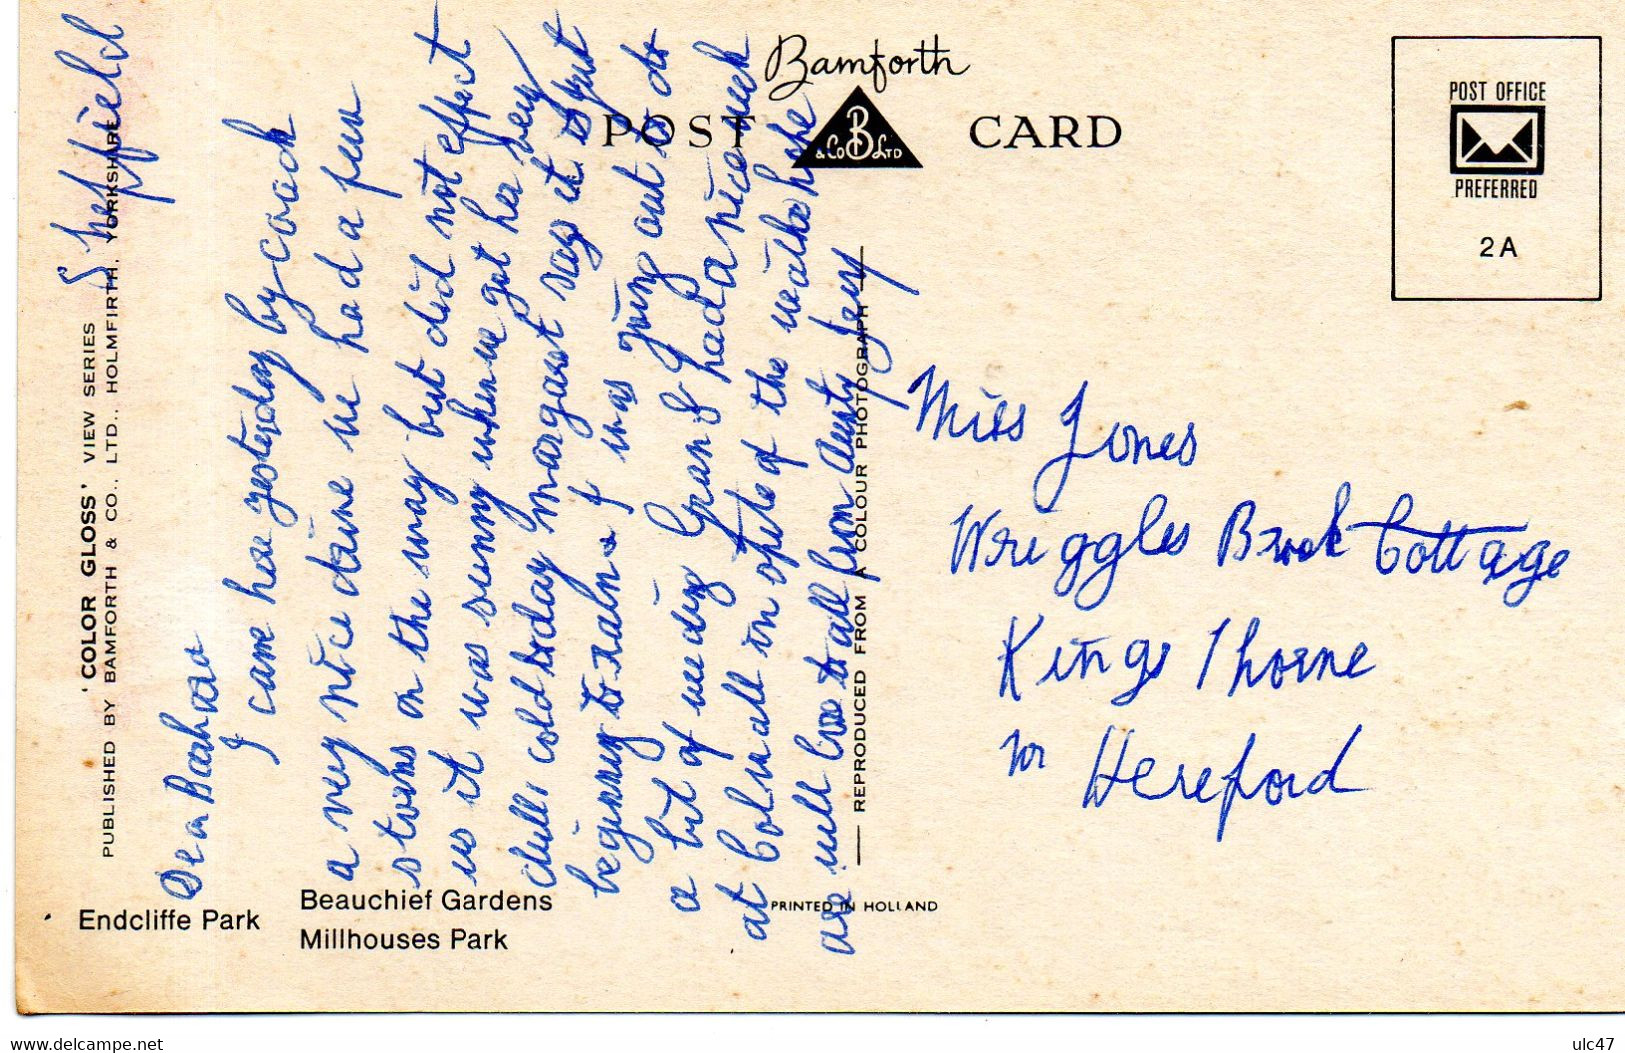 Sheffield
Dear Barbara
I came here yesterday by coach
a very nice drive we had a few
storms on the way but did not effect
us it was sunny when we got her very
dull, cold today Margaret says it is just
beginning to rain & I was going out to do
a bit of weeding Gran & I had a nice week
at Colwall in spite of the weather hope
are well love to all from Aunty
Miss Jones
Wriggles Brook Cottage
Kings Thorne
nr Hereford
Bamforth
POST CARD
B
& Co LTD
POST OFFICE
PREFERRED
2A
'COLOR GLOSS' VIEW SERIES
PUBLISHED BY BAMFORTH & CO., LTD., HOLMFIRTH, YORKSHIRE
REPRODUCED FROM A COLOUR PHOTOGRAPH
Endcliffe Park
Beauchief Gardens
Millhouses Park
PRINTED IN HOLLAND
www.delcampe.net
ulc47